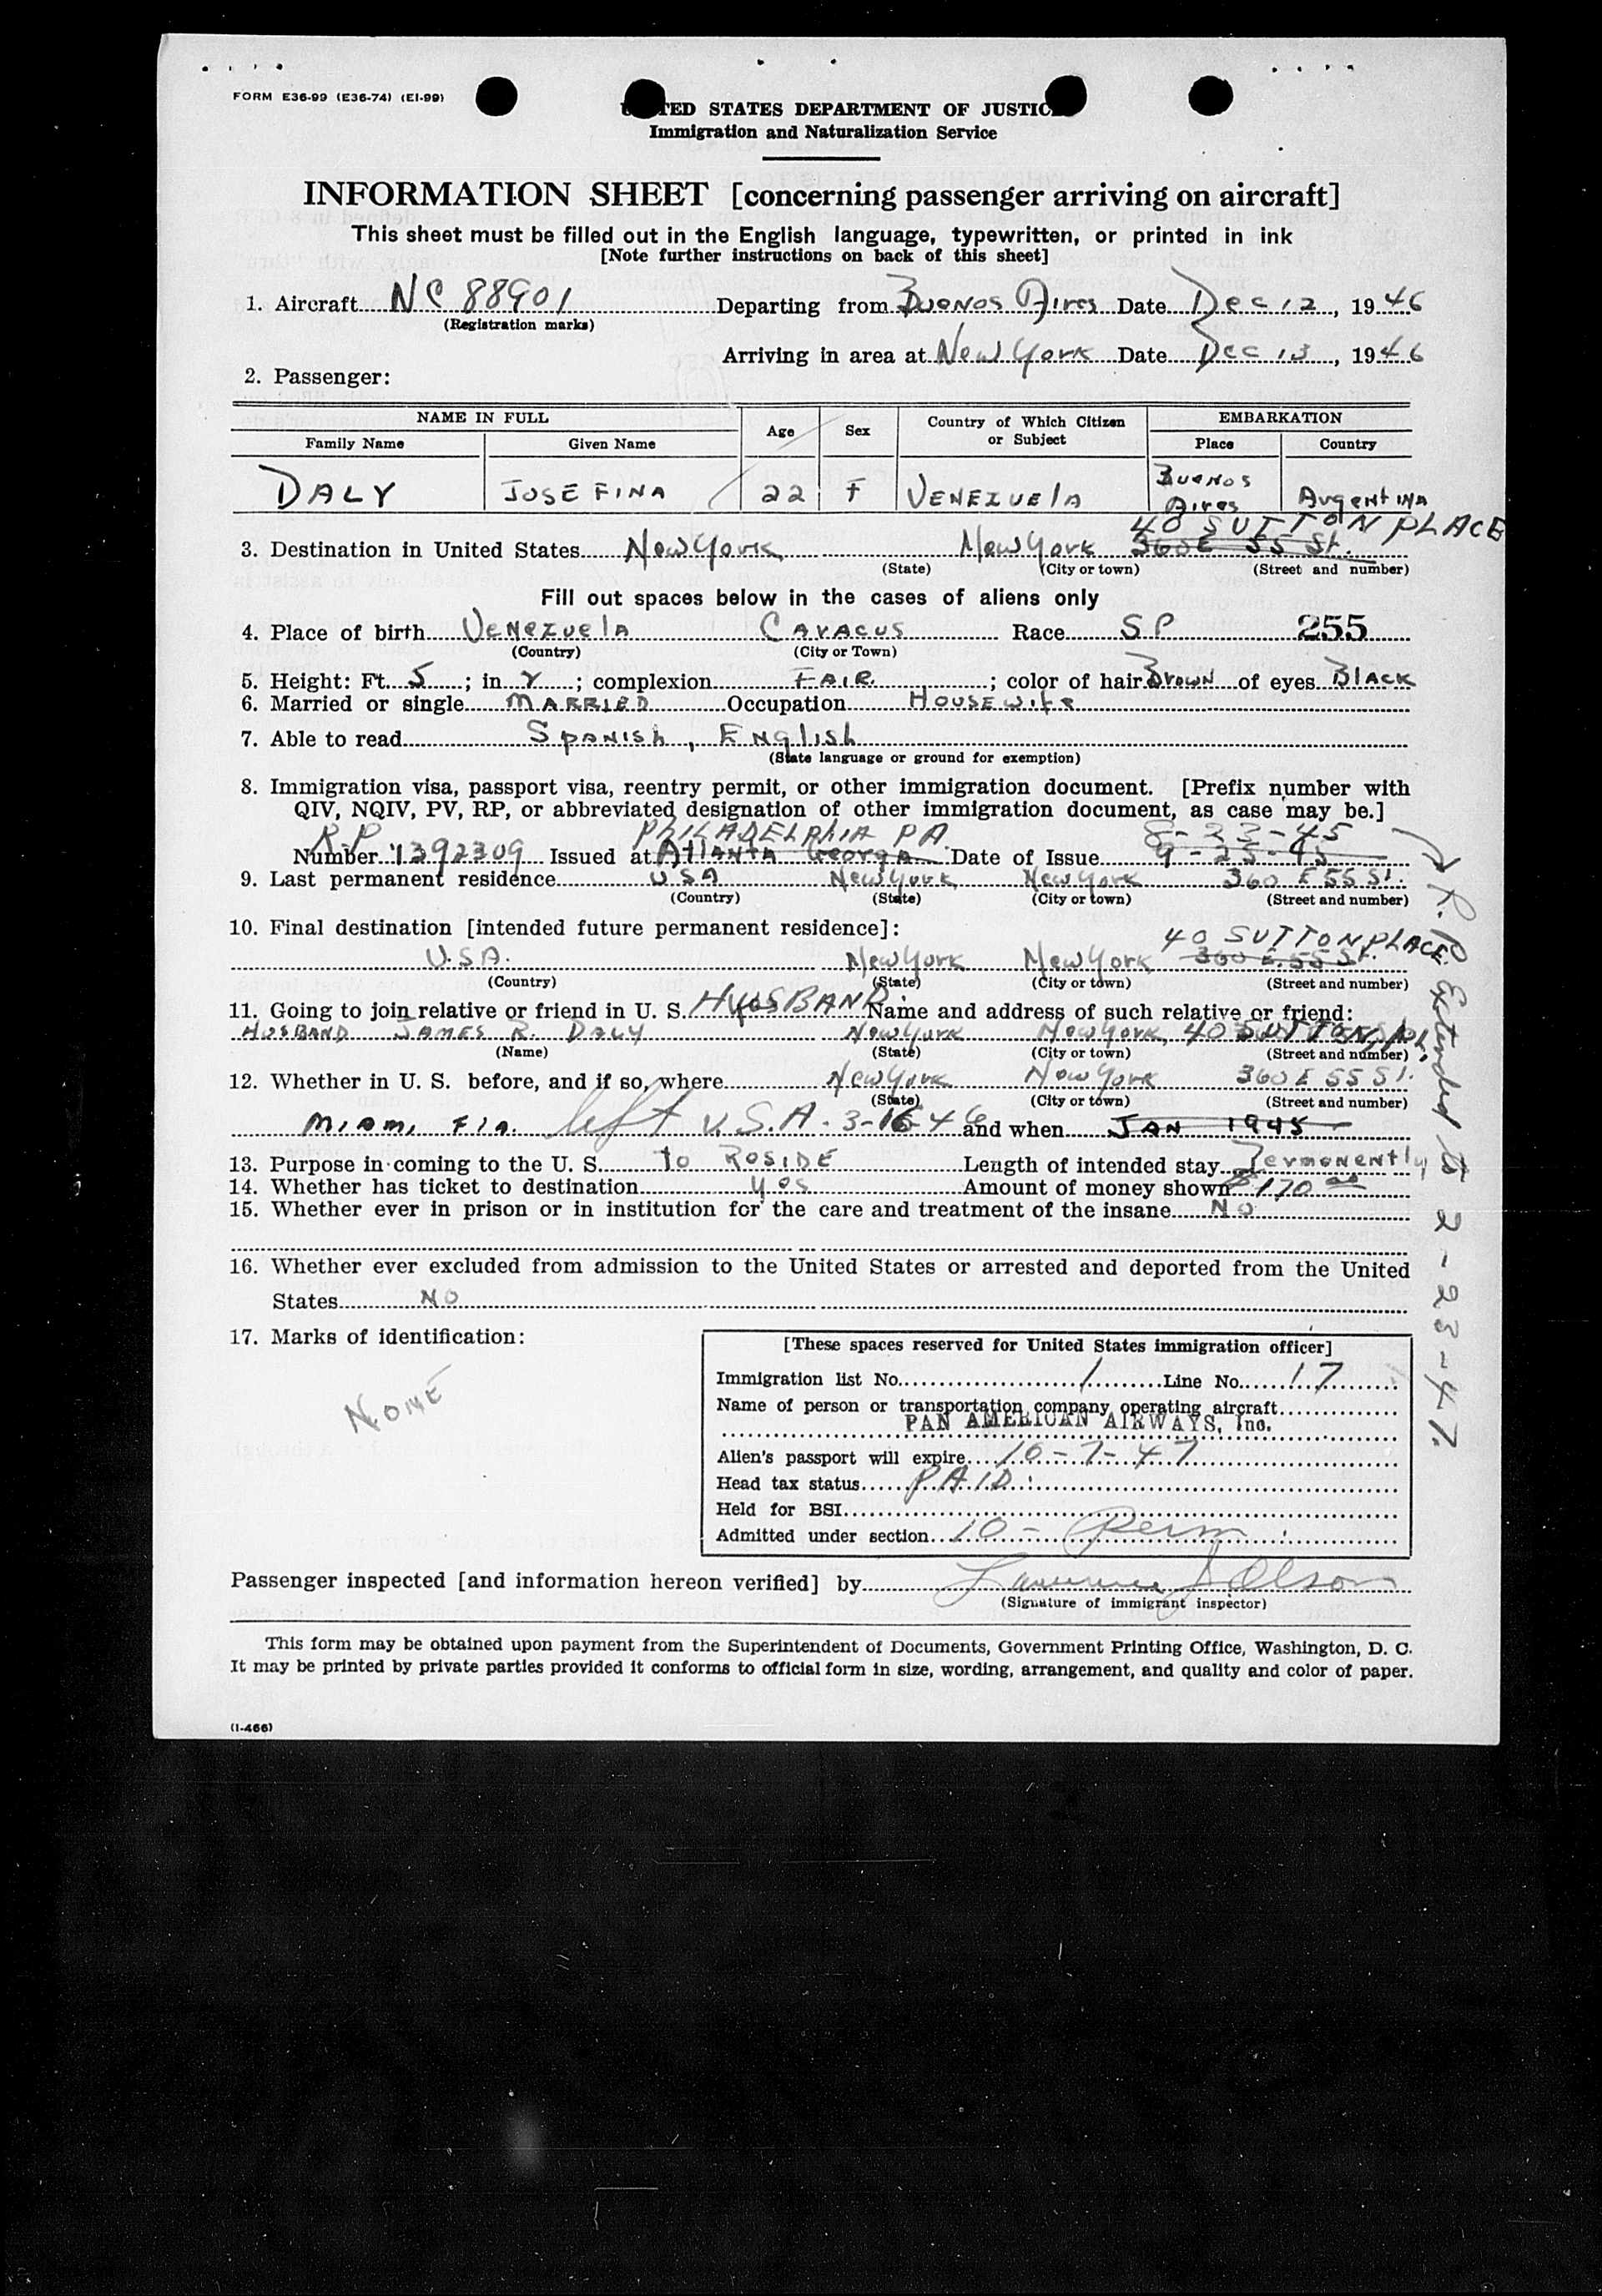 FORM E36-99 (E36-74) (EI-99)
UNITED STATES DEPARTMENT OF JUSTICE
Immigration and Naturalization Service
INFORMATION SHEET [concerning passenger arriving on aircraft]
This sheet must be filled out in the English language, typewritten, or printed in ink
[Note further instructions on back of this sheet]
1. Aircraft NC 88901 Departing from Buenos Aires Date Dec 12, 1946
(Registration marks)
Arriving in area at New York Date Dec 13, 1946
2. Passenger:
NAME IN FULL Age Sex Country of Which Citizen or Subject EMBARKATION
Family Name Given Name Place Country
DALY JOSEFINA 22 F VENEZUELA Buenos Aires Argentina
40 SUTTON PLACE
3. Destination in United States New York New York 360 E 55 St.
(State) (City or town) (Street and number)
Fill out spaces below in the cases of aliens only
4. Place of birth Venezuela Caracus Race SP 255
(Country) (City or Town)
5. Height: Ft. 5; in 2; complexion FAIR; color of hair Brown of eyes Black
6. Married or single MARRIED Occupation Housewife
7. Able to read Spanish, English
(State language or ground for exemption)
8. Immigration visa, passport visa, reentry permit, or other immigration document. [Prefix number with
QIV, NQIV, PV, RP, or abbreviated designation of other immigration document, as case may be.]
R.P PHILADELPHIA PA. 8-23-45
Number 1392309 Issued at Atlanta Georga Date of Issue 9-25-45
9. Last permanent residence USA New York New York 360 E 55 St.
(Country) (State) (City or town) (Street and number)
10. Final destination [intended future permanent residence]:
40 SUTTON PLACE
U.S.A. New York New York 360 E. 55 St.
(Country) (State) (City or town) (Street and number)
11. Going to join relative or friend in U. S. HUSBAND. Name and address of such relative or friend:
HUSBAND JAMES R. DALY New York New York, 40 SUTTON, PL.
(Name) (State) (City or town) (Street and number)
12. Whether in U. S. before, and if so, where New York New York 360 E 55 St.
(State) (City or town) (Street and number)
Miami Fla. left U.S.A. 3-16-46 and when JAN 1945
13. Purpose in coming to the U. S. To RESIDE Length of intended stay Permonently
14. Whether has ticket to destination yes Amount of money shown $170 00
15. Whether ever in prison or in institution for the care and treatment of the insane No
16. Whether ever excluded from admission to the United States or arrested and deported from the United
States NO
17. Marks of identification:
NONE
[These spaces reserved for United States immigration officer]
Immigration list No. 1 Line No. 17
Name of person or transportation company operating aircraft
PAN AMERICAN AIRWAYS, Inc.
Alien's passport will expire 10-7-47
Head tax status PAID
Held for BSI
Admitted under section 10- Perm
Passenger inspected [and information hereon verified] by Lawrence J Olson
(Signature of immigrant inspector)
This form may be obtained upon payment from the Superintendent of Documents, Government Printing Office, Washington, D. C.
It may be printed by private parties provided it conforms to official form in size, wording, arrangement, and quality and color of paper.
(I-466)
R.P. Extended to 2-23-47.